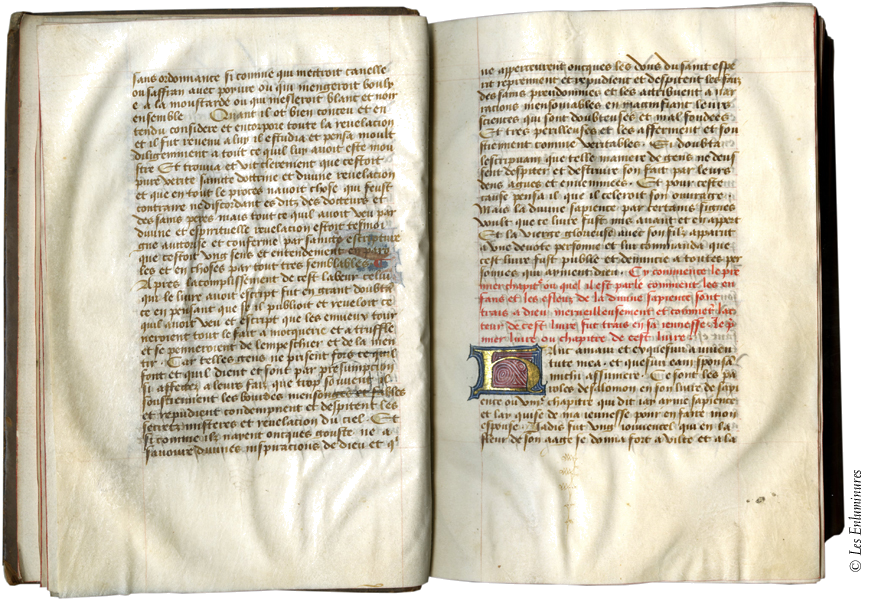 sans ordonnance si comme qui mettroit canelle
ou saffran avec poyvre ou qui mengeroit
a la moustarde ou qui mesleroit blanc et noir
ensemble Quant il ot bien conceu et en
tendu considere et toute la revelacion
et il fut revenu a luy il estudia et pensa moult
diligemment a tout ce qui luy avoit este mon
stre Et trouva et vit clerement que cestoit
pure verite sainte doctrine et divine revelacion
et que en tout le proces navoit chose qui feust
contraire ne discordant es ditz des docteurs et
des sains peres mais tout ce quil avoit veu par
divine et espirituelle revelacion estoit tesmoi
gne auctorise et conferme par saincte escripture
que cestoit ung sens et entendement
les et en choses par tout tres semblables
Apres lacomplissement de cest labeur celui
qui le livre avoit escript fut en grant doubte
ce en pensant que sil publioit et reveloit ce
quil avoit veu et escript que les envieux tour
neroient tout le fait a moquerie et a truffle
et se penneroient de lempeschier et de la men
tir Car telles gens ne prisent fors ce quil
font et quil dient et sont par presumpcion
si affectez a leurs fais que trop souvent ilz
soustiennent les bourdes mensonges et fables
et repudient condempnent et despitent les
secretz misteres et revelacion du ciel Et
si comme ilz nayent oncques gouste ne a
savoure divines inspiracions de dieu et qͥ
ne apperceurent oncques les dons du saint espe
rit reprennent et repudient et despitent les fais
des sains preudommes et les attribuent a nar
racions mensongables en magnifiant leurs
sciences qui sont doubteuses et mal fondees
Et tres perilleuses et les afferment et sou
stiennent comme veritables Si doubta
lescripvant que telle maniere de gens ne deus
sent despiter et destruire son fait par leurs
dens agues et envenimees Et pour ceste
cause pensa il que il celeroit son ouvrage
Mais la divine sapience par certains signes
voult que ce livre fust mis avant et en appert
Et la vierge glorieuse avec son filz apparut
a une devote personne et lui commanda que
cest livre fust publie et denuncie a toutes per
sonnes qui ayment dieu Cy commence le pre
mier chapitre ou quel il est parle comment les en
fans et les esleuz de la divine sapience sont
trais a dieu merveilleusement et comment lac
teur de cest livre fut trais en sa jeunesse le p̃
mier livre ou chapitre de cest livre
Hanc amavi et exquisivi a juven
tute mea et quesivi eam sponsam
michi assumere Ce sont les pa
roles de salomon en son livre de sapi
ence ou viijͤ chapitre qui dit jay ayme sapience
et lay quise de ma jeunesse pour en faire mon
espouse Jadis fut ung jouvencel qui en la
fleur de son aage se donna fort a et a la
© Les Enluminures